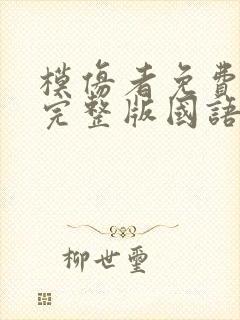 模傷者免費
完整版國語
柳世璽